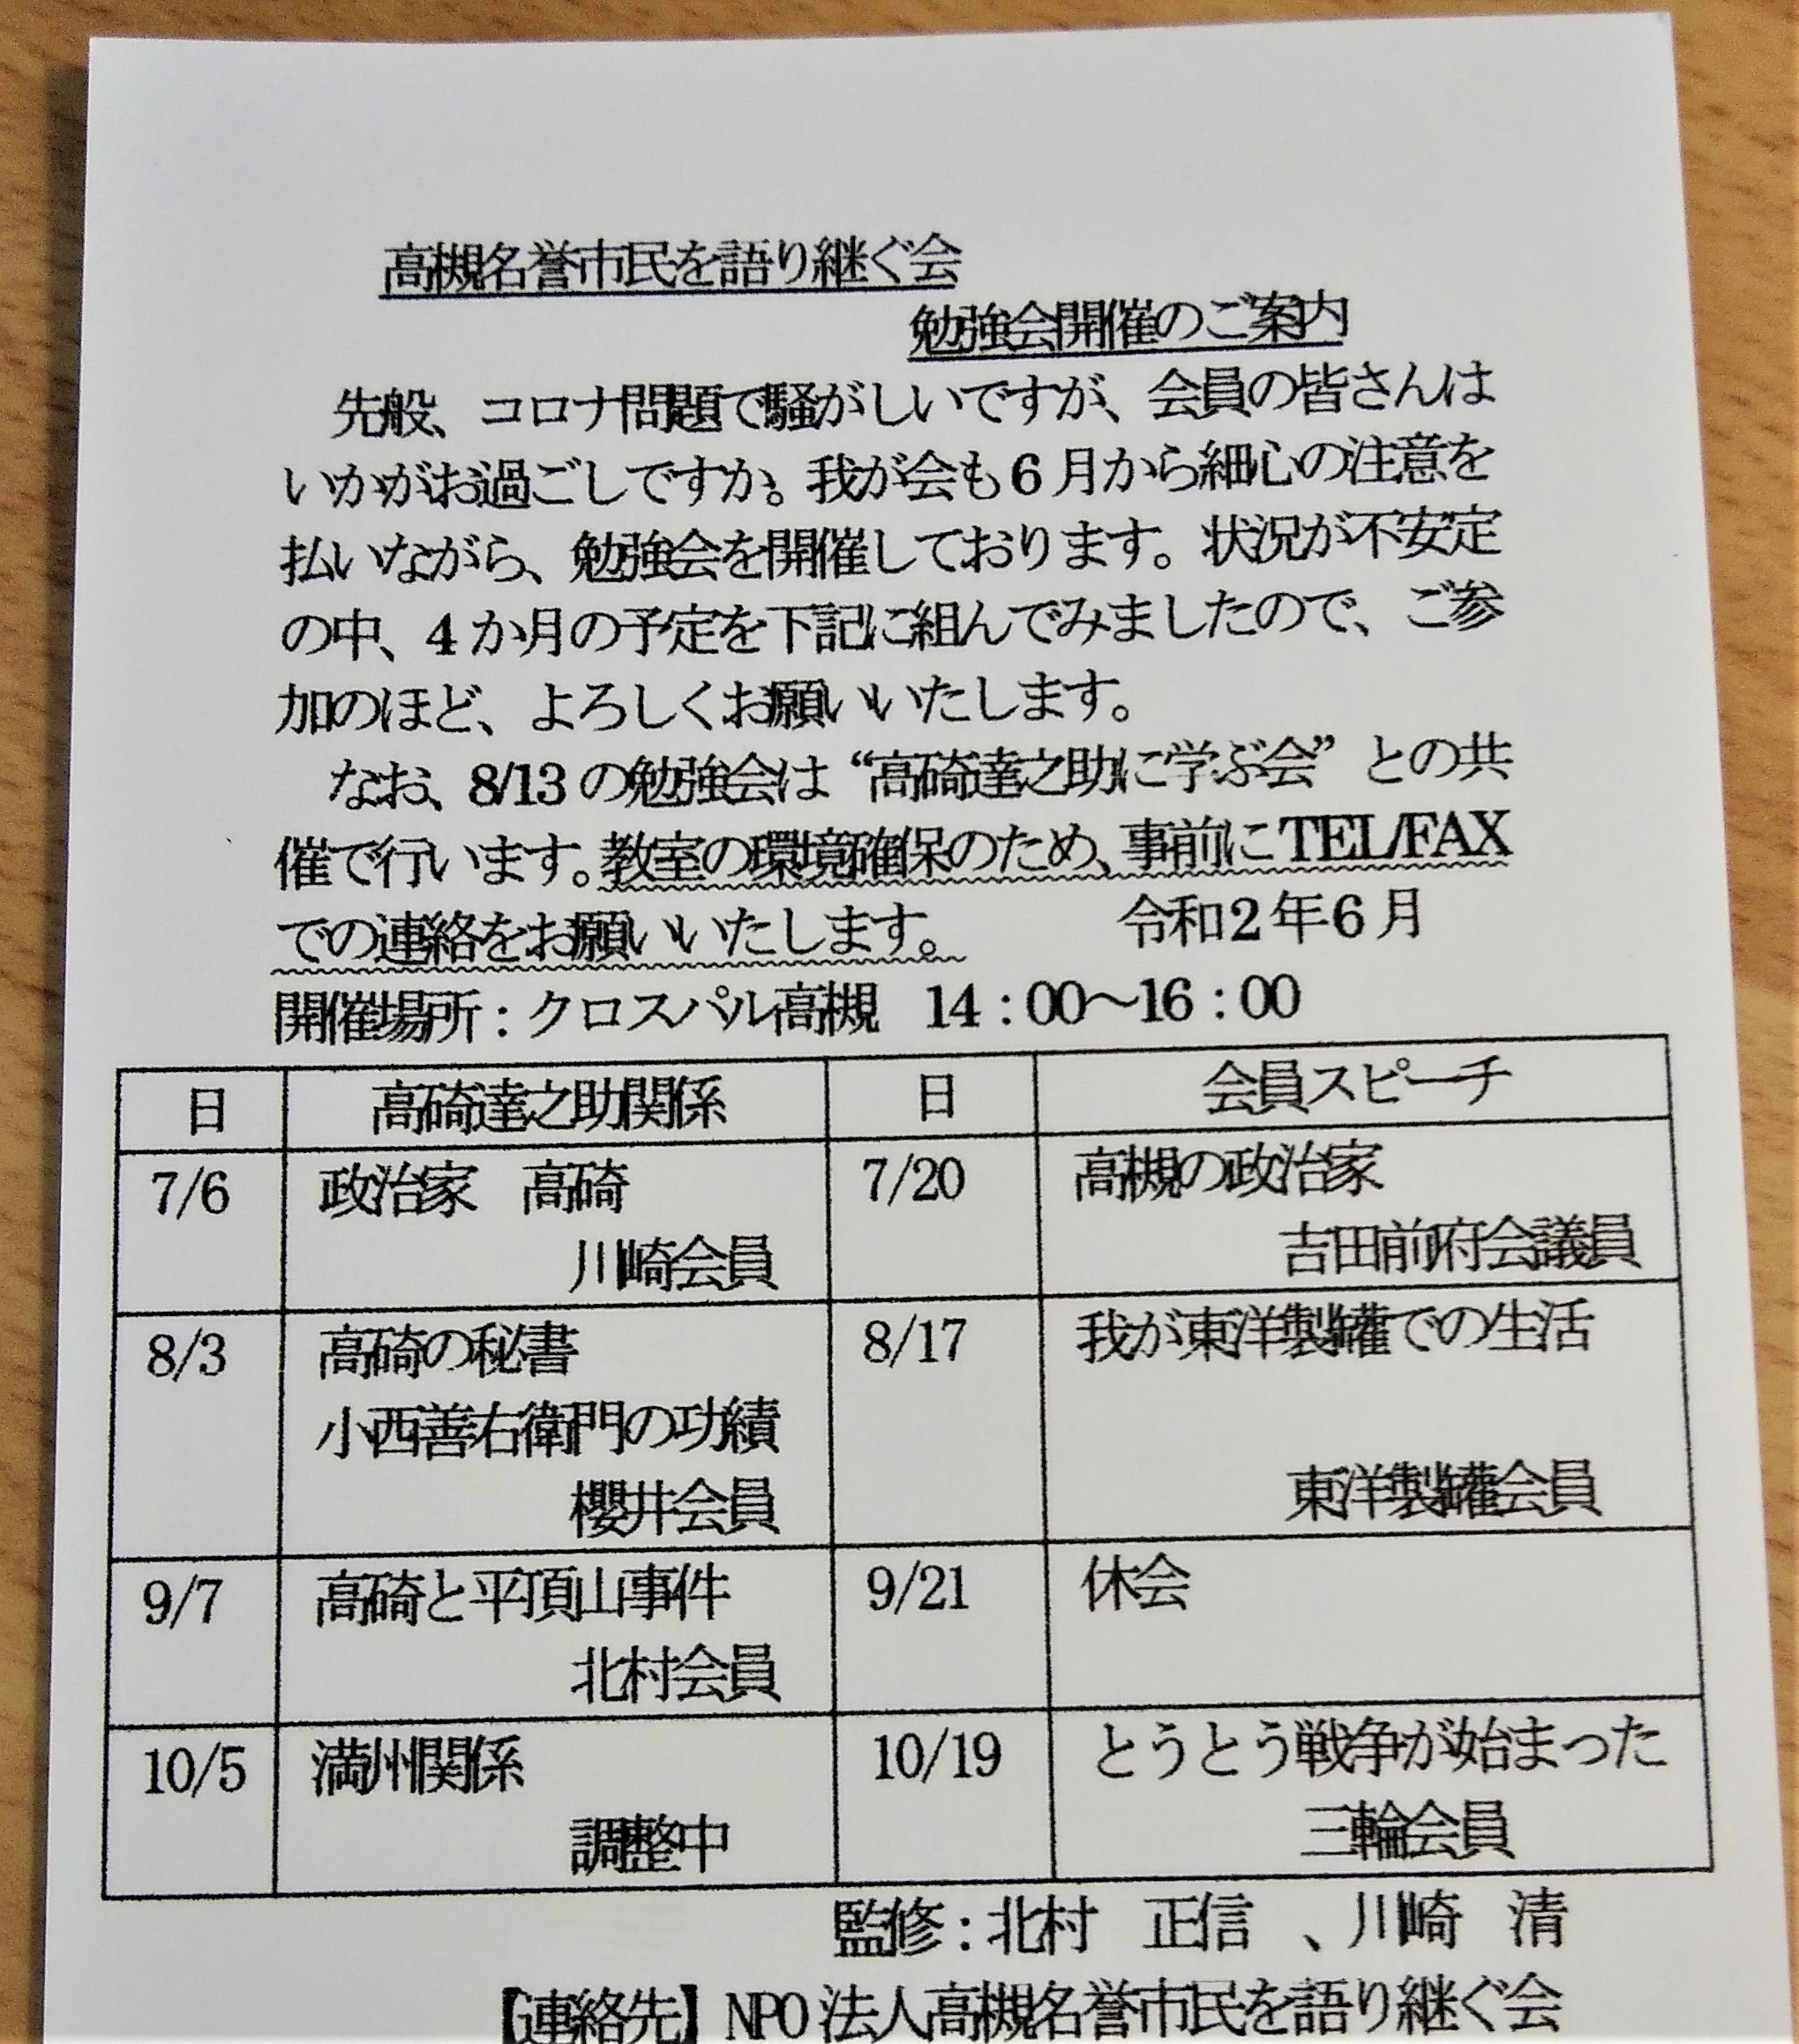 高槻名誉市民を語り継ぐ会
勉強会開催のご案内
先般、コロナ問題で騒がしいですが、会員の皆さんは
いかがお過ごしですか。我が会も6月から細心の注意を
払いながら、勉強会を開催しております。状況が不安定
の中、4か月の予定を下記に組んでみましたので、ご参
加のほど、よろしくお願いいたします。
なお、8/13の勉強会は“高碕達之助に学ぶ会”との共
催で行います。教室の環境確保のため、事前にTEL/FAX
での連絡をお願いいたします。 令和2年6月
開催場所：クロスパル高槻 14：00～16：00
日 高碕達之助関係 日 会員スピーチ
7/6 政治家 高碕 7/20 高槻の政治家
川崎会員 吉田前府会議員
8/3 高碕の秘書 8/17 我が東洋製罐での生活
小西善右衛門の功績
櫻井会員 東洋製罐会員
9/7 高碕と平頂山事件 9/21 休会
北村会員
10/5 満州関係 10/19 とうとう戦争が始まった
調整中 三輪会員
監修：北村 正信 、川崎 清
【連絡先】NPO法人高槻名誉市民を語り継ぐ会